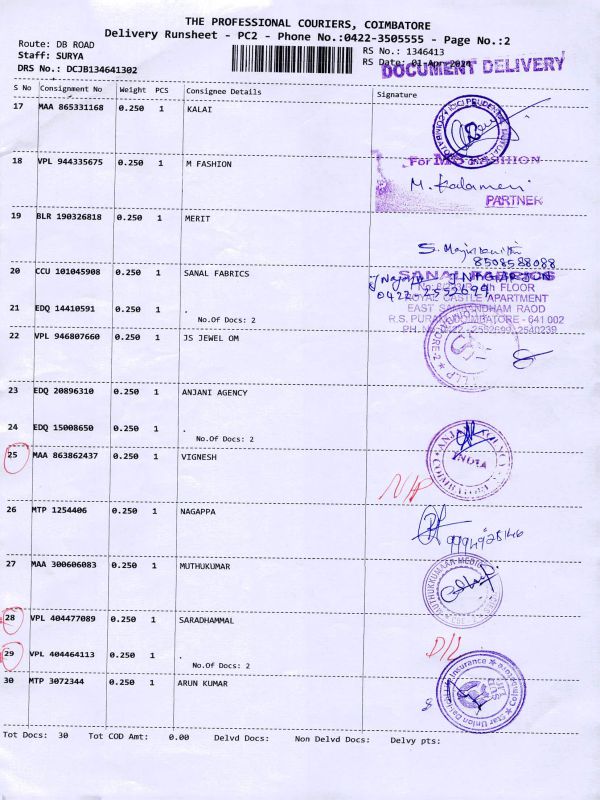 THE PROFESSIONAL COURIERS, COIMBATORE
Delivery Runsheet - PC2 - Phone No.:0422-3505555 - Page No.:2
Route: DB ROAD
Staff: SURYA
DRS No.: DCJB134641302
RS No.: 1346413
RS Date: 01-Apr-2024
DOCUMENT DELIVERY
S No Consignment No Weight PCS Consignee Details Signature
17 MAA 865331168 0.250 1 KALAI
18 VPL 944335675 0.250 1 M FASHION
For M S FASHION
M. Kalamani
PARTNER
19 BLR 190326818 0.250 1 MERIT
8508588088
20 CCU 101045908 0.250 1 SANAL FABRICS
SANAL FABRICS
FLOOR
ROYAL CASTLE APARTMENT
EAST SAMBANDHAM RAOD
R.S. PURAM, COIMBATORE - 641 002
21 EDQ 14410591 0.250 1 .
No.Of Docs: 2
22 VPL 946807660 0.250 1 JS JEWEL OM
23 EDQ 20896310 0.250 1 ANJANI AGENCY
24 EDQ 15008650 0.250 1 .
No.Of Docs: 2
ANJANI AGENCY
INDIA
COIMBATORE
25 MAA 863862437 0.250 1 VIGNESH
26 MTP 1254406 0.250 1 NAGAPPA
27 MAA 300606083 0.250 1 MUTHUKUMAR
28 VPL 404477089 0.250 1 SARADHAMMAL
D/L
29 VPL 404464113 0.250 1 .
No.Of Docs: 2
30 MTP 3072344 0.250 1 ARUN KUMAR
Star Union Dai-ichi Life Insurance
Coimbatore
Tot Docs: 30 Tot COD Amt: 0.00 Delvd Docs: Non Delvd Docs: Delvy pts: